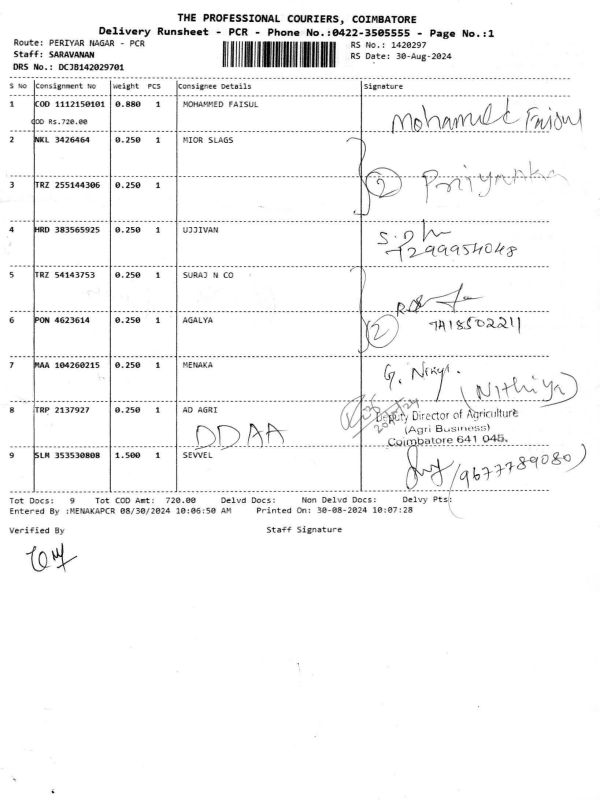 THE PROFESSIONAL COURIERS, COIMBATORE
Delivery Runsheet - PCR - Phone No.:0422-3505555 - Page No.:1
Route: PERIYAR NAGAR - PCR RS No.: 1420297
Staff: SARAVANAN RS Date: 30-Aug-2024
DRS No.: DCJB142029701
S No Consignment No Weight PCS Consignee Details Signature
1 COD 1112150101 0.880 1 MOHAMMED FAISUL
COD Rs.720.00 Mohamed Faisul
2 NKL 3426464 0.250 1 MIOR SLAGS
3 TRZ 255144306 0.250 1 2 Priyanka
4 HRD 383565925 0.250 1 UJJIVAN
7299954048
5 TRZ 54143753 0.250 1 SURAJ N CO
6 PON 4623614 0.250 1 AGALYA 2 7418502211
7 MAA 104260215 0.250 1 MENAKA
(Nithiya)
8 TRP 2137927 0.250 1 AD AGRI Deputy Director of Agriculture
DDAA (Agri Business)
Coimbatore 641 045.
9 SLM 353530808 1.500 1 SEVVEL /9677789080)
Tot Docs: 9 Tot COD Amt: 720.00 Delvd Docs: Non Delvd Docs: Delvy Pts:
Entered By :MENAKAPCR 08/30/2024 10:06:50 AM Printed On: 30-08-2024 10:07:28
Verified By Staff Signature